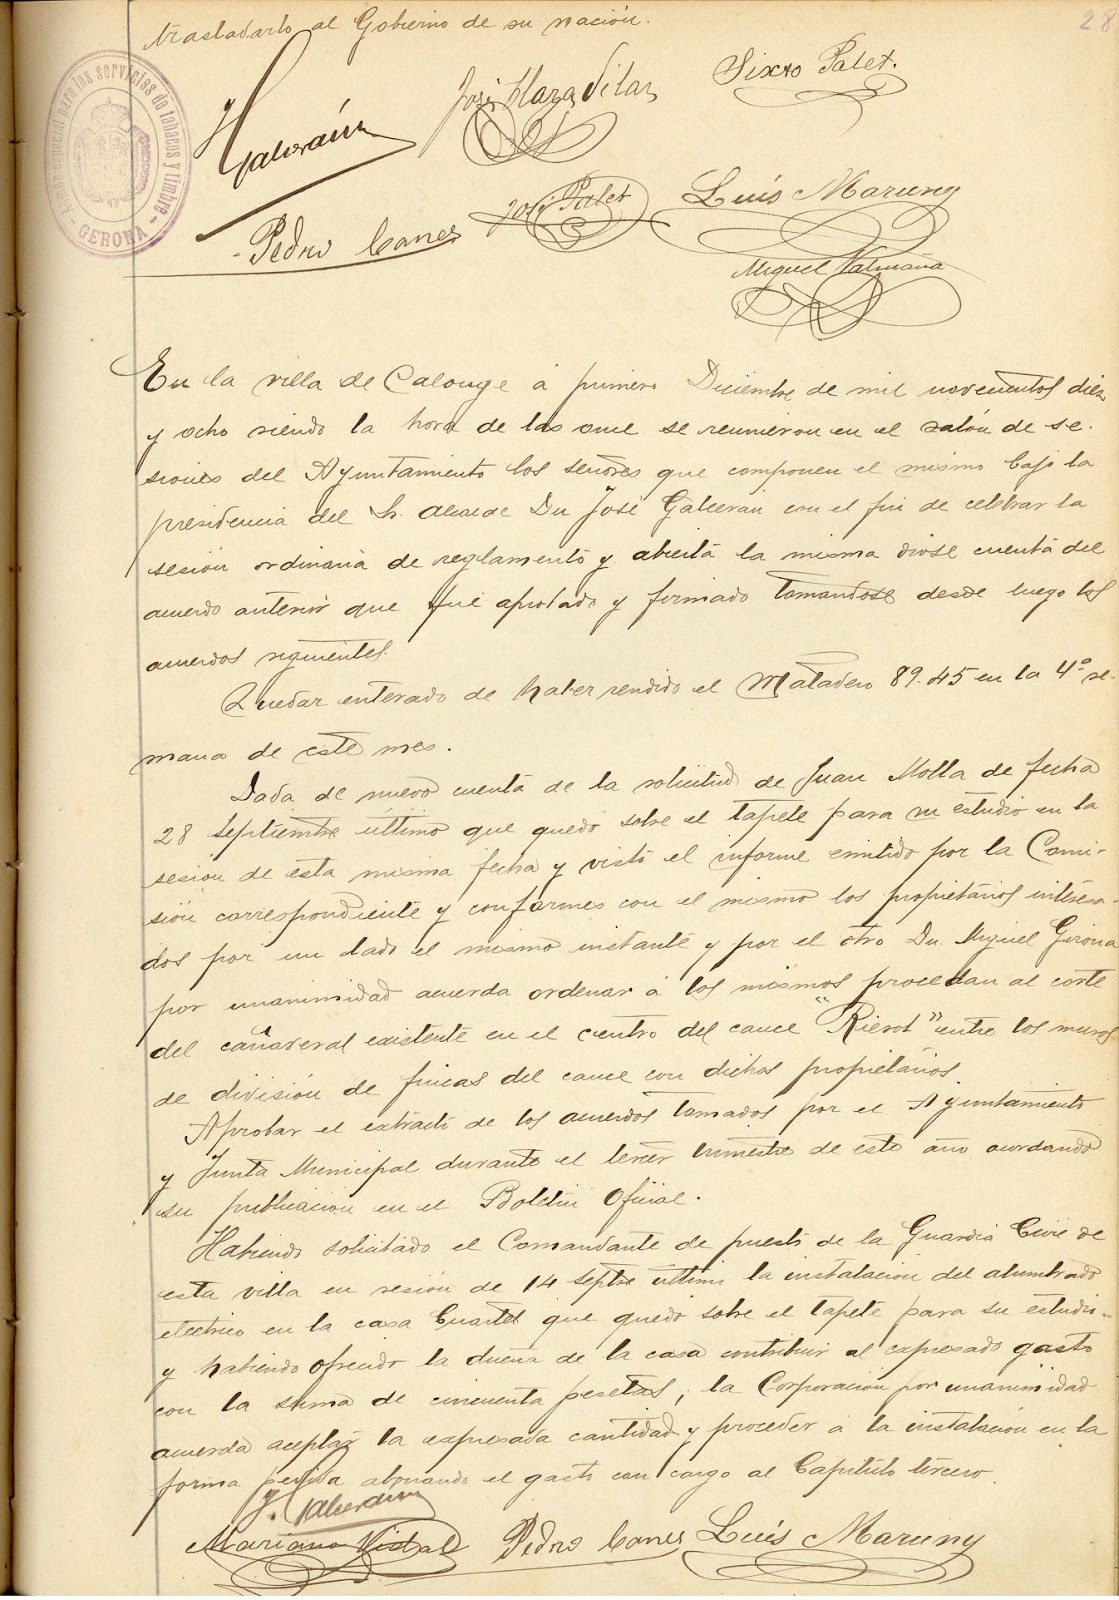 trasladarlo al Gobierno de su nación.
28
para los servicios de tabacos y timbre
GERONA
J Galcerán
José Plaza Vilar
Sixto Palet.
Pedro Canes
José Palet
Luís Maruny
Miguel Valmaña
En la villa de Calonge á primero Diciembre de mil novecientos diez
y ocho siendo la hora de las once se reunieron en el salón de se-
siones del Ayuntamiento los señores que componen el mismo bajo la
presidencia del Sr. Alcalde Dn José Galceran con el fin de celebrar la
sesión ordinaria de reglamento y abierta la misma diose cuenta del
acuerdo anterior que fué aprobado y firmado tomandose desde luego los
acuerdos siguientes.
Quedar enterado de haber rendido el Matadero 89.45 en la 4ª se-
mana de este mes.
Dada de nuevo cuenta de la solicitud de Juan Molla de fecha
28 septiembre último que quedó sobre el tapete para su estudio en la
sesión de esta misma fecha y visto el informe emitido por la Comi-
sión correspondiente y conformes con el mismo los propietarios interesa-
dos por un lado el mismo instante y por el otro Dn. Miguel Girona
por unanimidad acuerda ordenar á los mismos procedan al corte
del cañaveral existente en el centro del cauce "Rierot" entre los muros
de división de fincas del cauce con dichos propietarios.
Aprobar el extracto de los acuerdos tomados por el Ayuntamiento
y Junta Municipal durante el tercer trimestre de este año acordando
su publicación en el Boletín Oficial.
Habiendo solicitado el Comandante de puesto de la Guardia Civil de
esta villa en sesión de 14 Septbre último la instalación del alumbrado
eléctrico en la casa Cuartel que quedó sobre el tapete para su estudio
y habiendo ofrecido la dueña de la casa contribuir al expresado gasto
con la suma de cincuenta pesetas, la Corporación por unanimidad
acuerda aceptar la expresada cantidad y proceder á la instalación en la
forma pedida abonando el gasto con cargo al Capítulo tercero.
J. Galcerán
Mariano Vidal
Pedro Canes
Luís Maruny